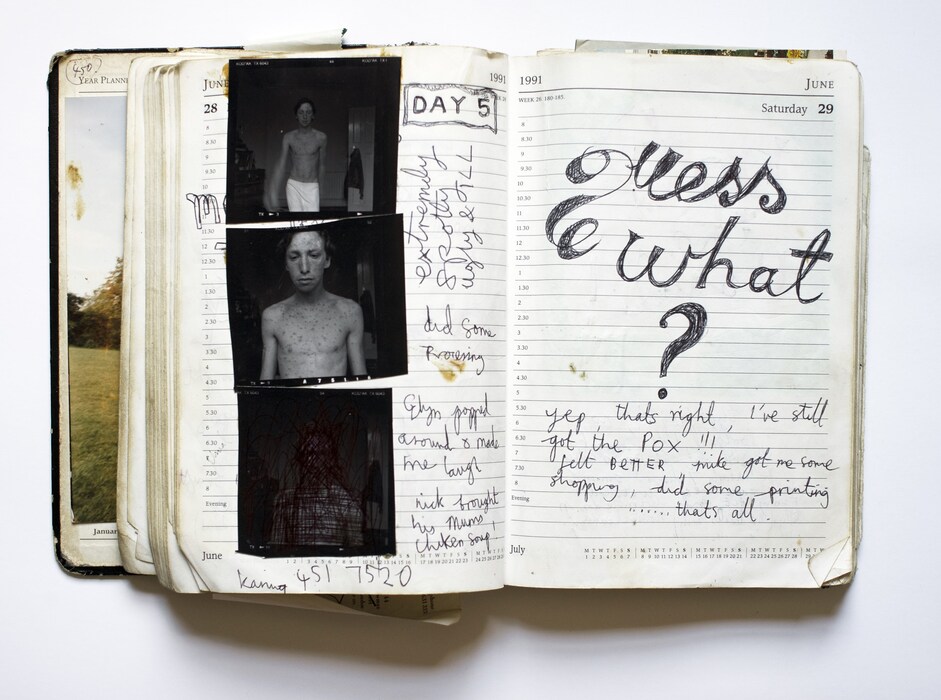 450?
YEAR PLANN
Januar
JUNE 1991
28
DAY 5
extremely
spotty
ugly & ill
did some
Processing
Glyn popped
around & made
me laugh
nick brought
his mums
chicken soup!
8
8.30
9
9.30
10
11.30
12
12.30
1
1.30
2
2.30
3
3.30
4
4.30
5
5.30
6
6.30
7
7.30
8
Evening
June
451 7520
1991 JUNE
WEEK 26 180-185
Saturday 29
8
8.30
9
9.30
10
10.30
11
11.30
12
12.30
1
1.30
2
2.30
3
3.30
4
4.30
5
5.30
6
6.30
7
7.30
8
Evening
Guess
what
?
yep, thats right, I've still
got the POX !!!
felt BETTER mike got me some
shopping, did some printing
...... thats all.
July
M T W T F S S M T W T F S S M T W T F S S M T W T F S S
1 2 3 4 5 6 7 8 9 10 11 12 13 14 15 16 17 18 19 20 21 22 23 24 25 26 27 28